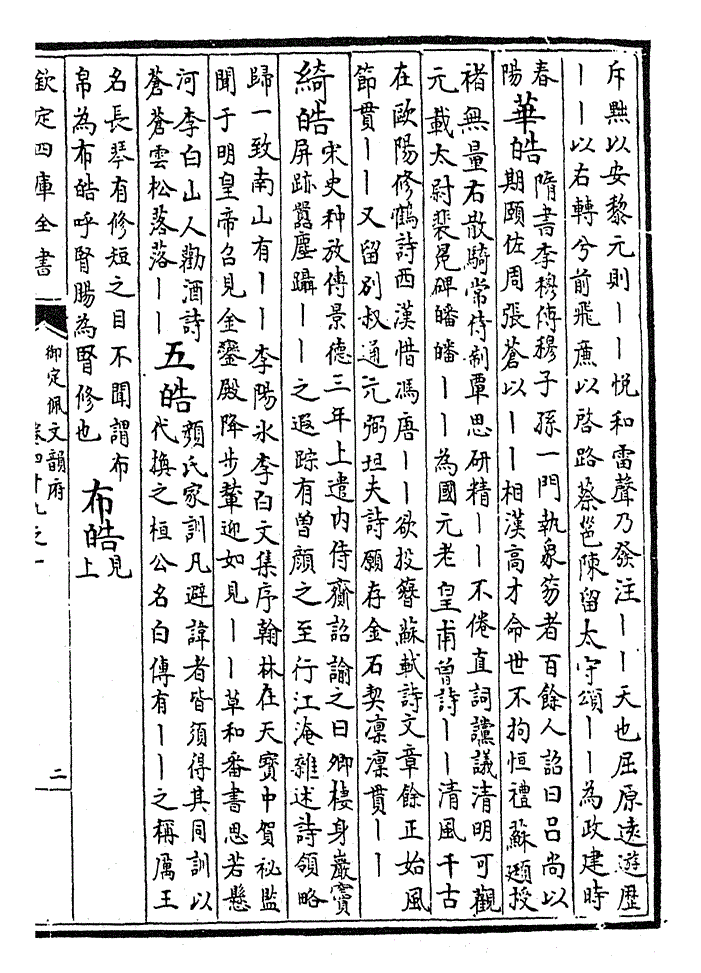 斥黜以安黎元則丨丨悅和雷聲乃發注丨丨天也屈原遠遊歴
丨丨以右轉兮前飛廉以啓路蔡邕陳留太守頌丨丨為政建時
春
陽
華皓
隋書李穆傳穆子孫一門執象笏者百餘人詔曰吕尚以
期頤佐周張蒼以丨丨相漢高才命世不拘恒禮蘇頲授
褚無量右散騎常侍制覃思研精丨丨不倦直詞讜議清明可觀
元載太尉裴冕碑皤皤丨丨為國元老皇甫曾詩丨丨清風千古
在歐陽修鶴詩西漢惜馮唐丨丨欲投簪蘇軾詩文章餘正始風
節貫丨丨又留别叔通元弼坦夫詩願存金石契凛凛貫丨丨
綺皓
宋史种放傳景德三年上遣内侍齎詔諭之曰卿棲身巖竇
屏跡囂塵躡丨丨之遐踪有曾顔之至行江淹雜述詩領略
歸一致南山有丨丨李陽氷李白文集序翰林在天寳中賀祕監
聞于明皇帝召見金鑾殿降步輦迎如見丨丨草和番書思若懸
河李白山人勸酒詩
蒼蒼雲松落落丨丨
五皓
顔氏家訓凡避諱者皆須得其同訓以
代換之桓公名白傳有丨丨之稱厲王
名長琴有修短之目不聞謂布
帛為布皓呼腎腸為腎修也
布皓
見
上
欽定四庫全書
御定佩文韻府
卷四十九之一
二